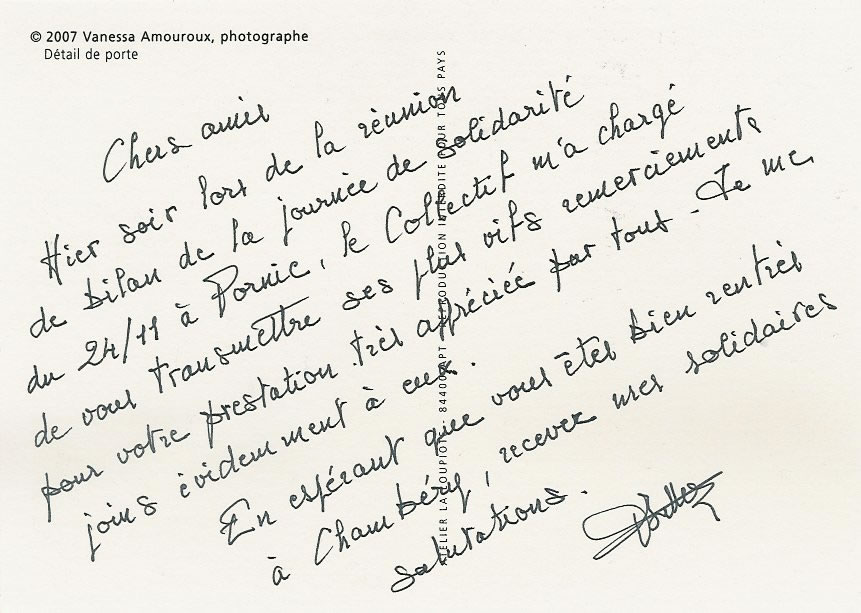 © 2007 Vanessa Amouroux, photographe
Détail de porte
ATELIER LA LOUPIOTE - 84400 APT - REPRODUCTION INTERDITE POUR TOUS PAYS
Chers amis
Hier soir lors de la réunion
de bilan de la journée de solidarité
du 24/11 à Pornic, le Collectif m'a chargé
de vous transmettre ses plus vifs remerciements
pour votre prestation très appréciée par tous - Je me
joins évidemment à eux.
En espérant que vous êtes bien rentrés
à Chambéry, recevez mes solidaires
salutations.